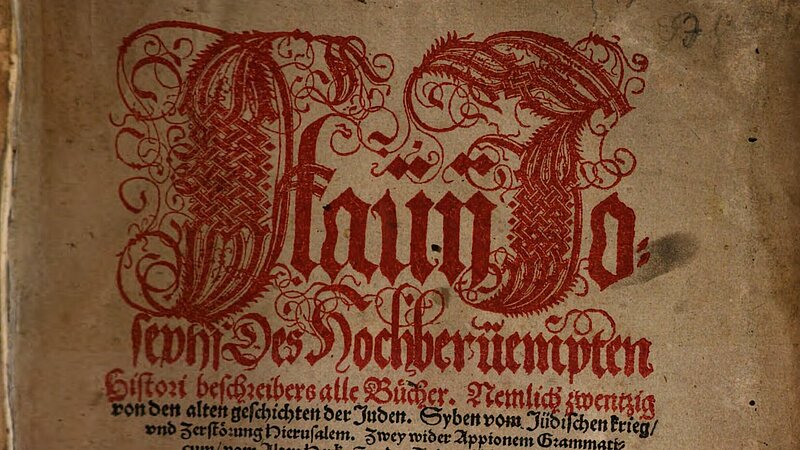 Flaüij Jo=
sephi Des Hochberüempten
Histori beschreibers alle Bücher. Nemlich zwentzig
von den alten geschichten der Juden. Syben vom Jüdischen krieg/
vnd Zerstörung Hierusalem. Zwey wider Appionem Grammati=
cum/ vom Alten